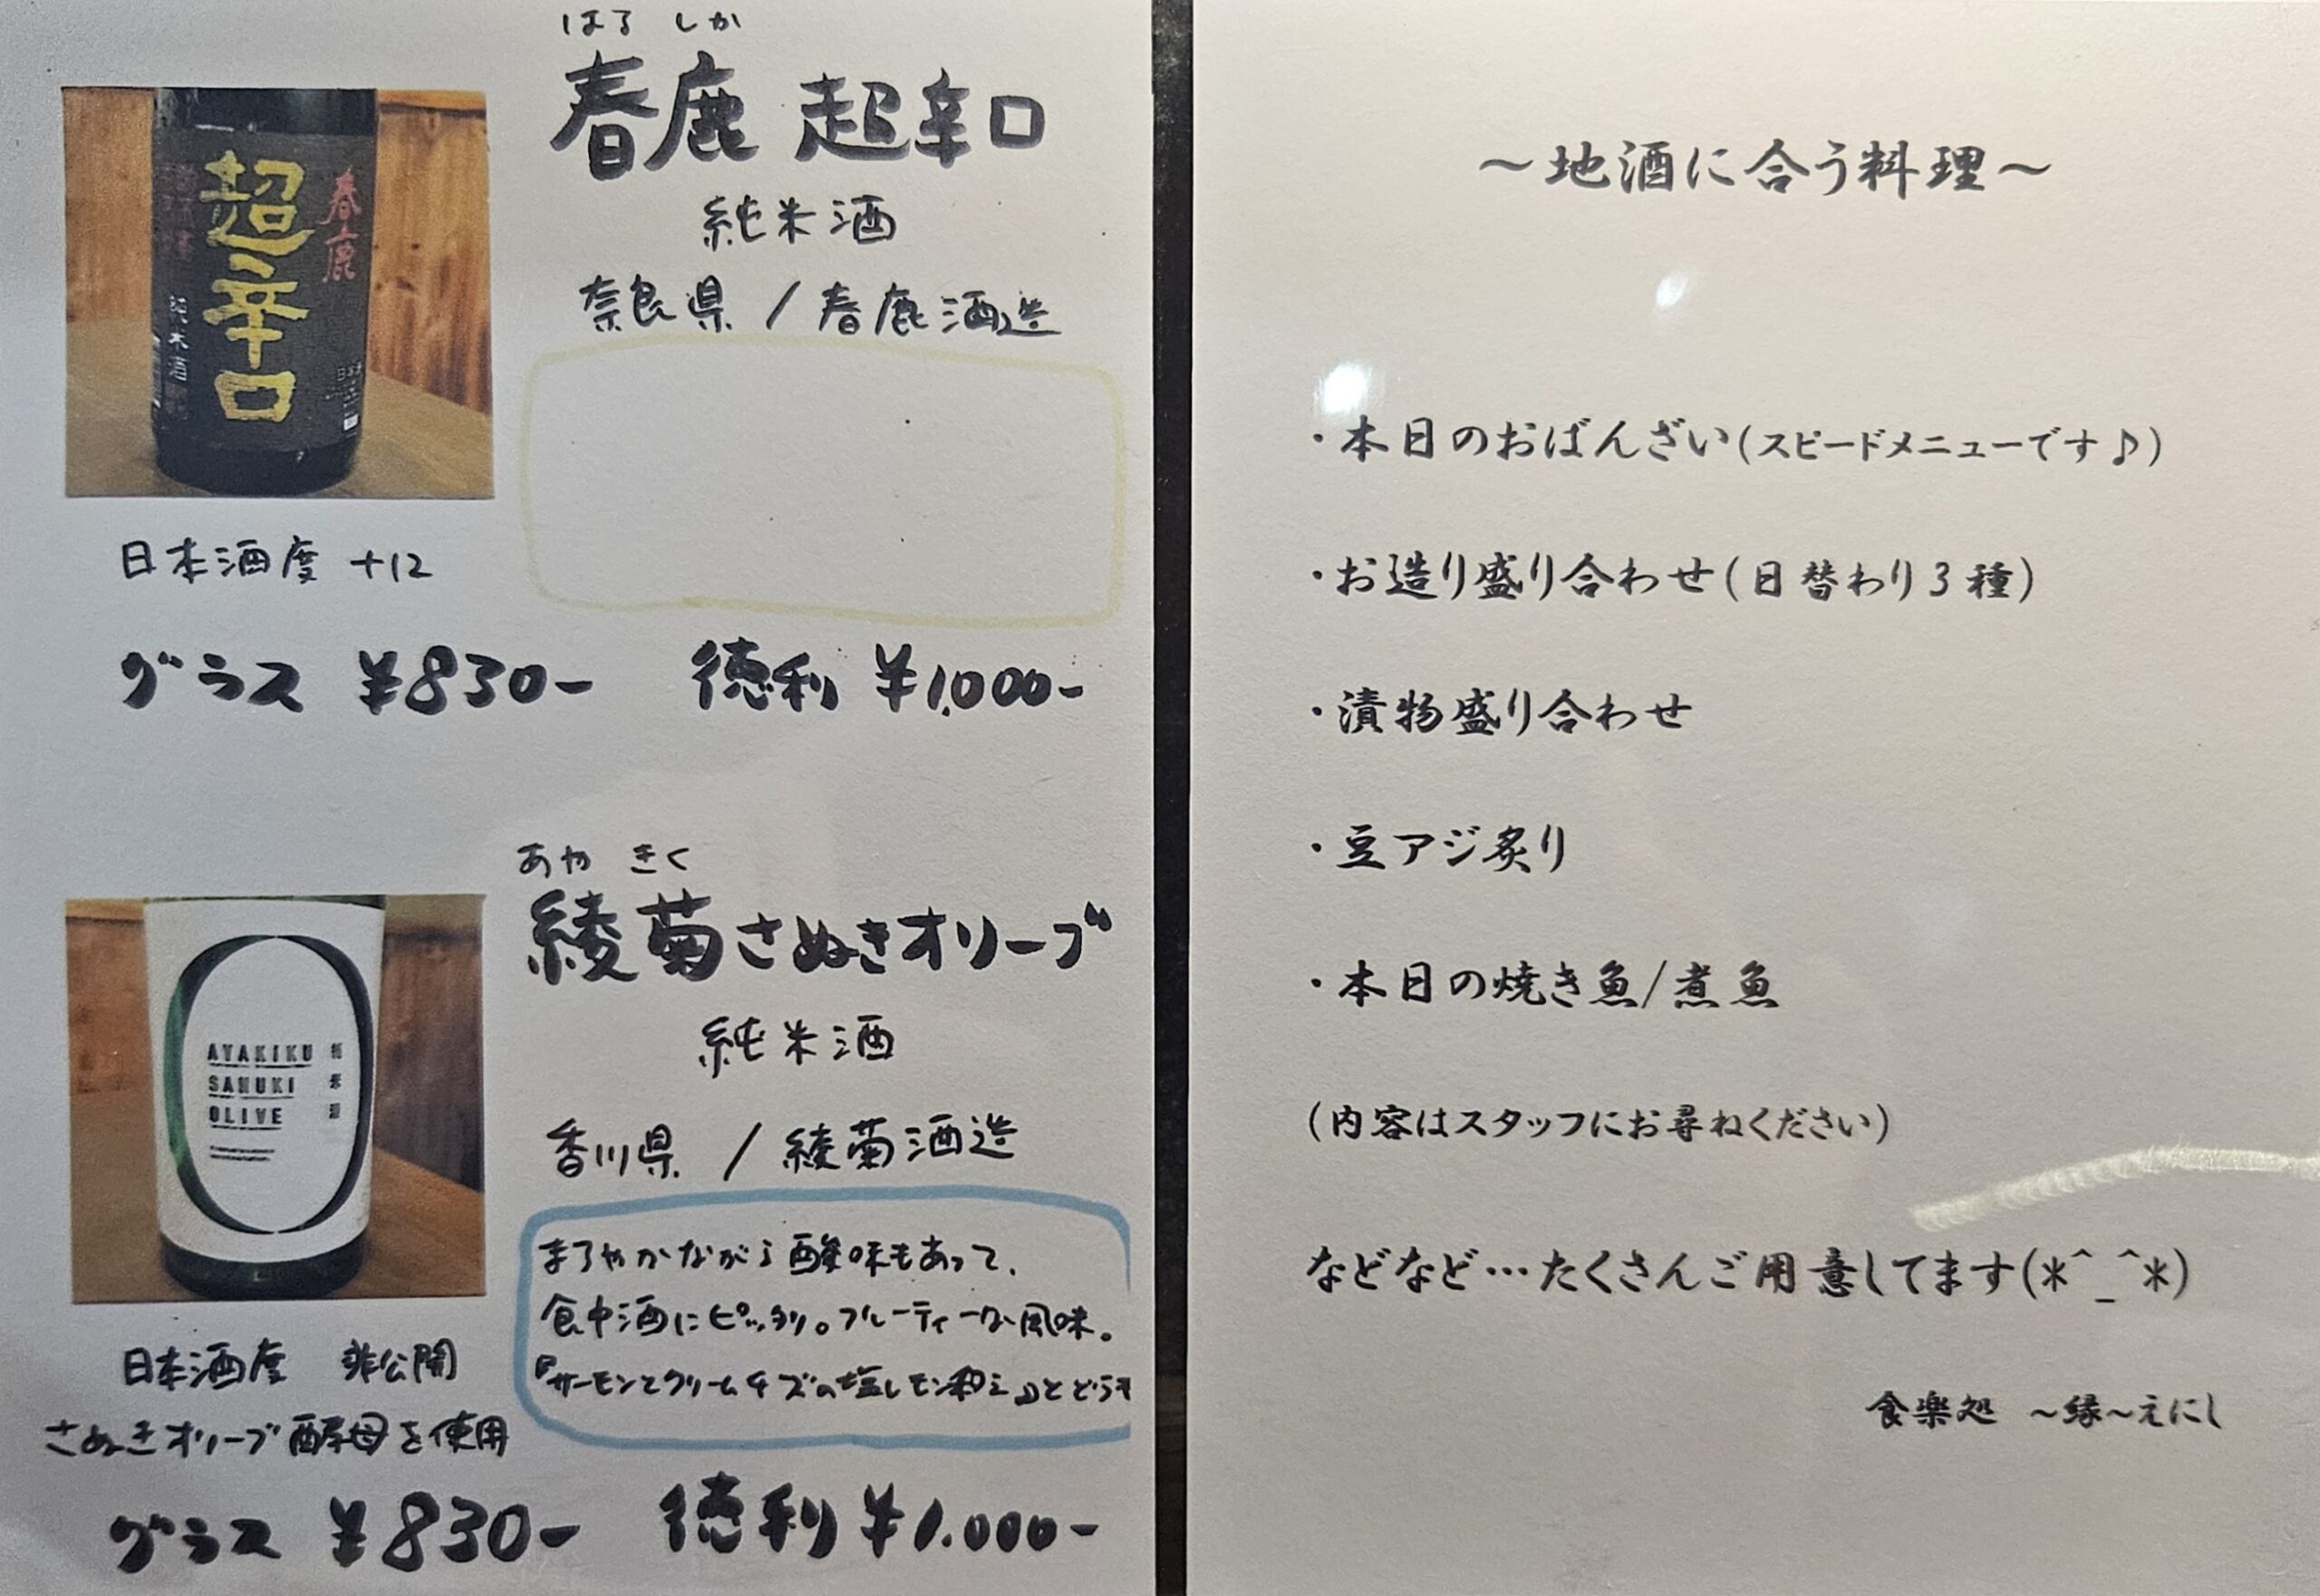 はるしか
春鹿 超辛口
純米酒
奈良県 / 春鹿酒造
超辛口
春鹿
純米酒
日本酒度 +12
グラス ¥830- 徳利 ¥1,000-
あやきく
綾菊さぬきオリーブ
純米酒
香川県 / 綾菊酒造
AYAKIKU
SANUKI
OLIVE
純米酒
まろやかながら酸味もあって、
食中酒にピッタリ。フルーティーな風味。
『サーモンとクリームチーズの塩レモン和え』とどうぞ
日本酒度 非公開
さぬきオリーブ酵母を使用
グラス ¥830- 徳利 ¥1.000-
～地酒に合う料理～
・本日のおばんざい(スピードメニューです♪)
・お造り盛り合わせ(日替わり3種)
・漬物盛り合わせ
・豆アジ炙り
・本日の焼き魚/煮魚
(内容はスタッフにお尋ねください)
などなど…たくさんご用意してます(*^_^*)
食楽処 ～縁～えにし